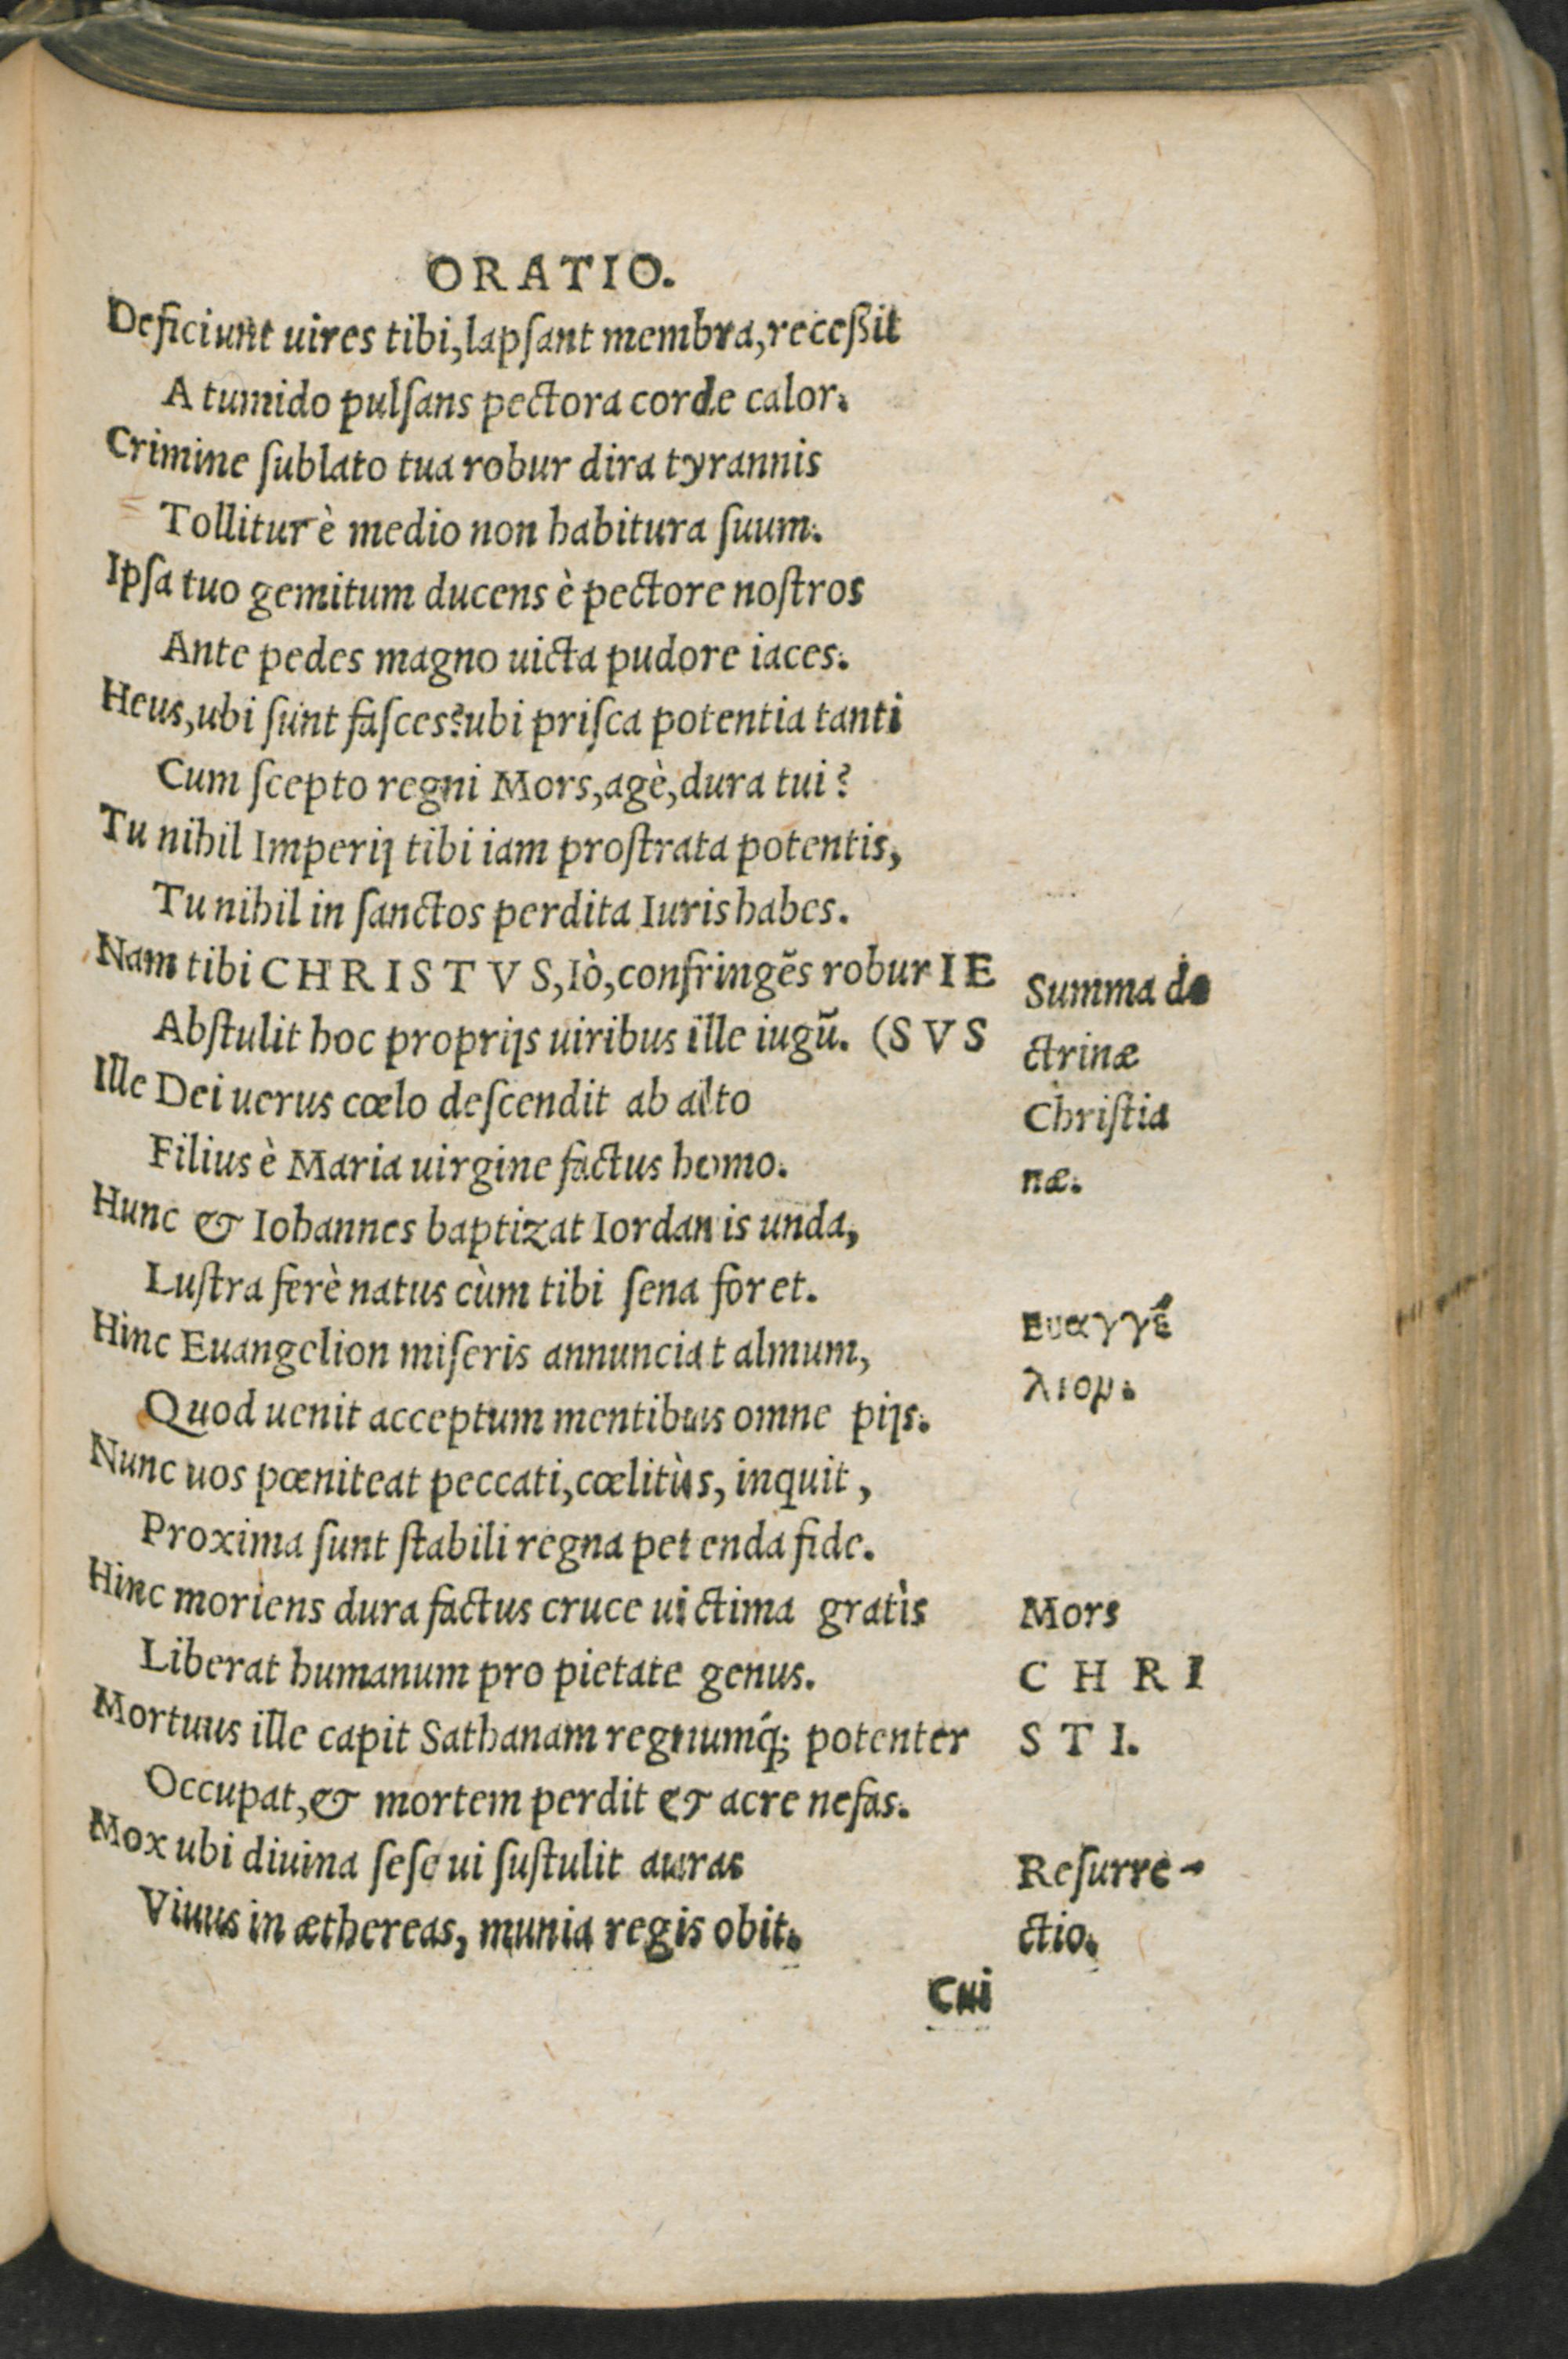 ORATIO.
Deficiunt uires tibi, lapſant membra, receßit
A tumido pulſans pectora corde calor.
Crimine ſublato tua robur dira tyrannis
Tollitur è medio non habitura ſuum.
Ipſa tuo gemitum ducens è pectore noſtros
Ante pedes magno uicta pudore iaces.
Heus, ubi ſunt faſces? ubi priſca potentia tanti
Cum ſcepto regni Mors, agè, dura tui?
Tu nihil Imperij tibi iam proſtrata potentis,
Tu nihil in ſanctos perdita Iuris habes.
Nam tibi CHRISTVS, Iò, confringẽs robur IE
Abſtulit hoc proprijs uiribus ille iugũ. (SVS
Ille Dei uerus cœlo deſcendit ab alto
Filius è Maria uirgine factus homo.
Hunc & Iohannes baptizat Iordanis unda,
Luſtra ferè natus cùm tibi ſena foret.
Hinc Euangelion miſeris annunciat almum,
Quod uenit acceptum mentibus omne pijs.
Nunc uos pœniteat peccati, cœlitùs, inquit,
Proxima ſunt ſtabili regna petenda fide.
Hinc moriens dura factus cruce uictima gratìs
Liberat humanum pro pietate genus.
Mortuus ille capit Sathanam regnumq́; potenter
Occupat, & mortem perdit & acre nefas.
Mox ubi diuina ſeſe ui ſuſtulit auras
Viuus in æthereas, munia regis obit.
Cui
Summa do
ctrinæ
Chriſtia
næ.
Ευαγγέ
λιον.
Mors
CHRI
STI.
Reſurre-
ctio.